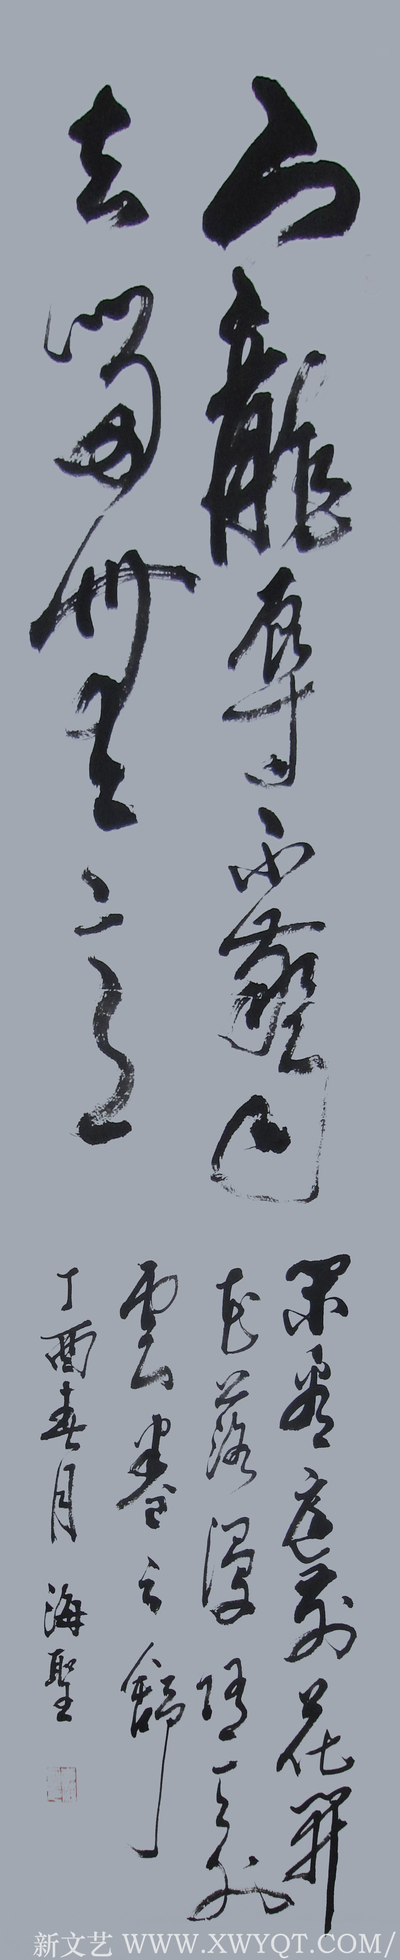 寵辱不驚
去留無意
閑看庭前花開
花落漫隨天外
雲卷云舒
丁酉春月 海聖
新文艺 WWW.XWYQT.COM/